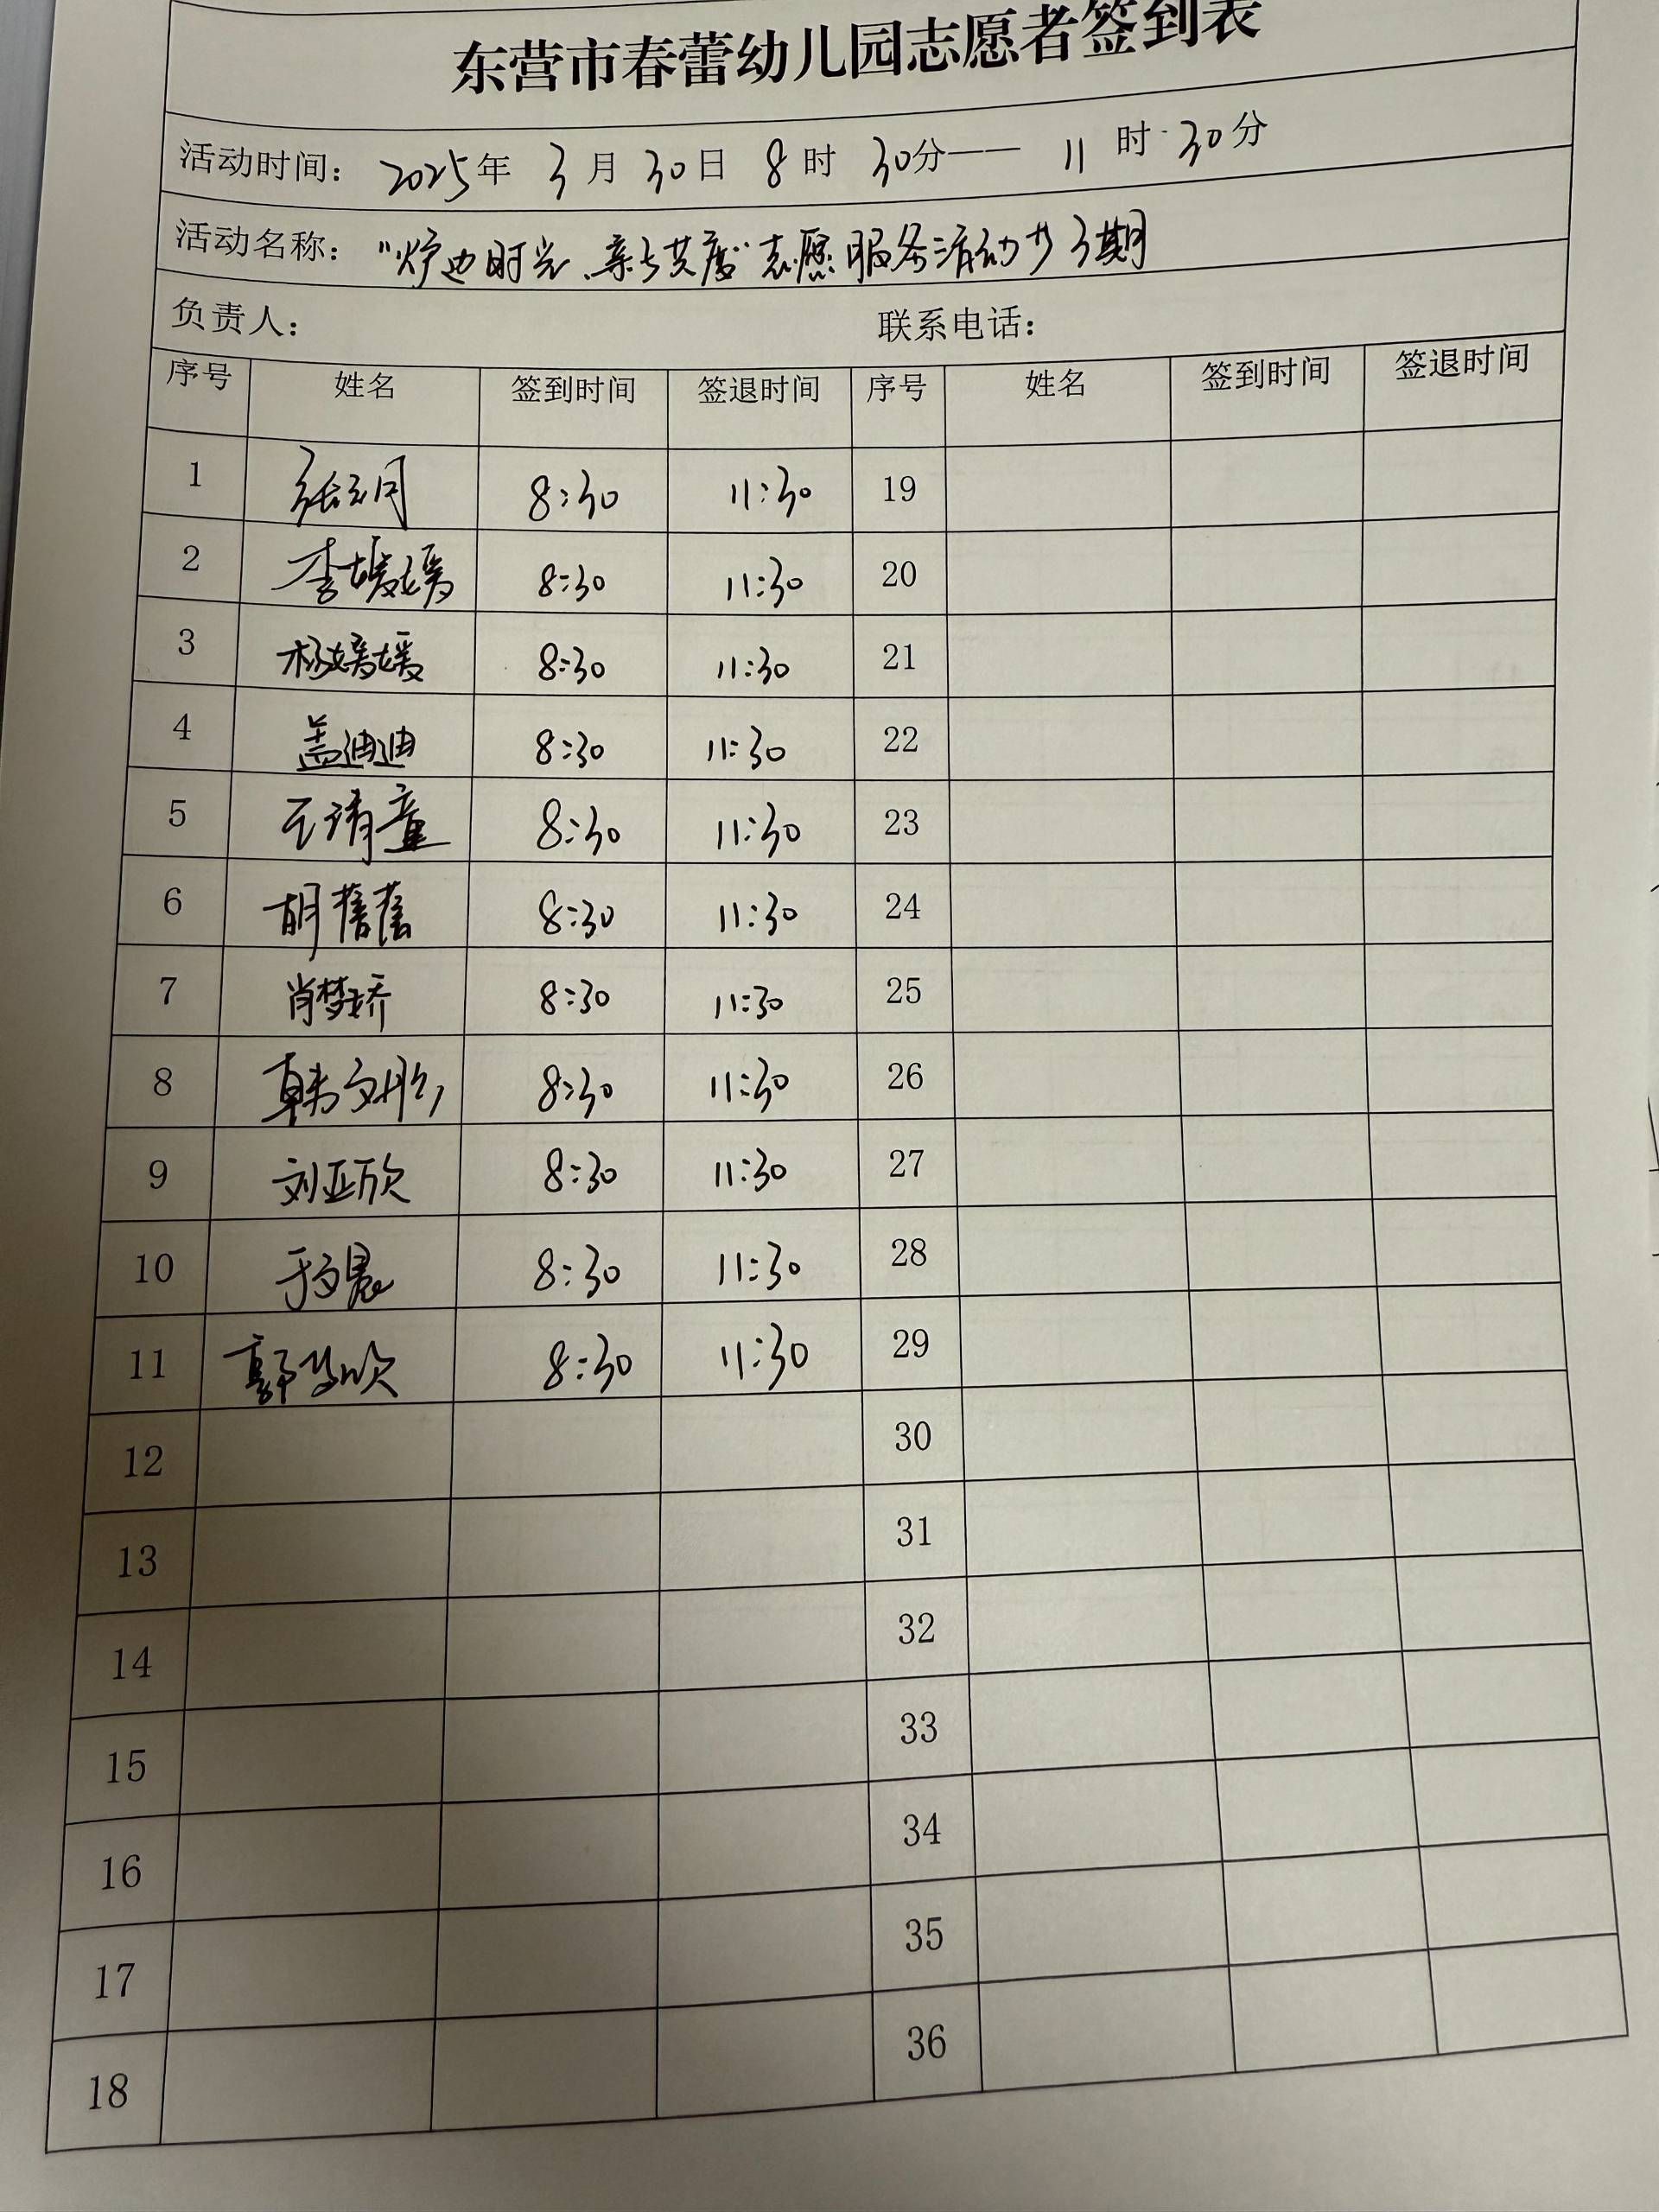 东营市春蕾幼儿园志愿者签到表
活动时间: 2025年 3月30日 8时 30分—— 11时30分
活动名称: "炉边时光、亲子共度"志愿服务活动 3期
负责人: 联系电话:
序号 姓名 签到时间 签退时间 序号 姓名 签到时间 签退时间
1 8:30 11:30 19
2 李媛媛 8:30 11:30 20
3 杨媛媛 8:30 11:30 21
4 盖迪迪 8:30 11:30 22
5 王靖童 8:30 11:30 23
6 胡蓓蓓 8:30 11:30 24
7 肖梦娇 8:30 11:30 25
8 韩文彤 8:30 11:30 26
9 刘亚欣 8:30 11:30 27
10 于文晨 8:30 11:30 28
11 郭梦欣 8:30 11:30 29
12 30
13 31
14 32
15 33
16 34
17 35
18 36